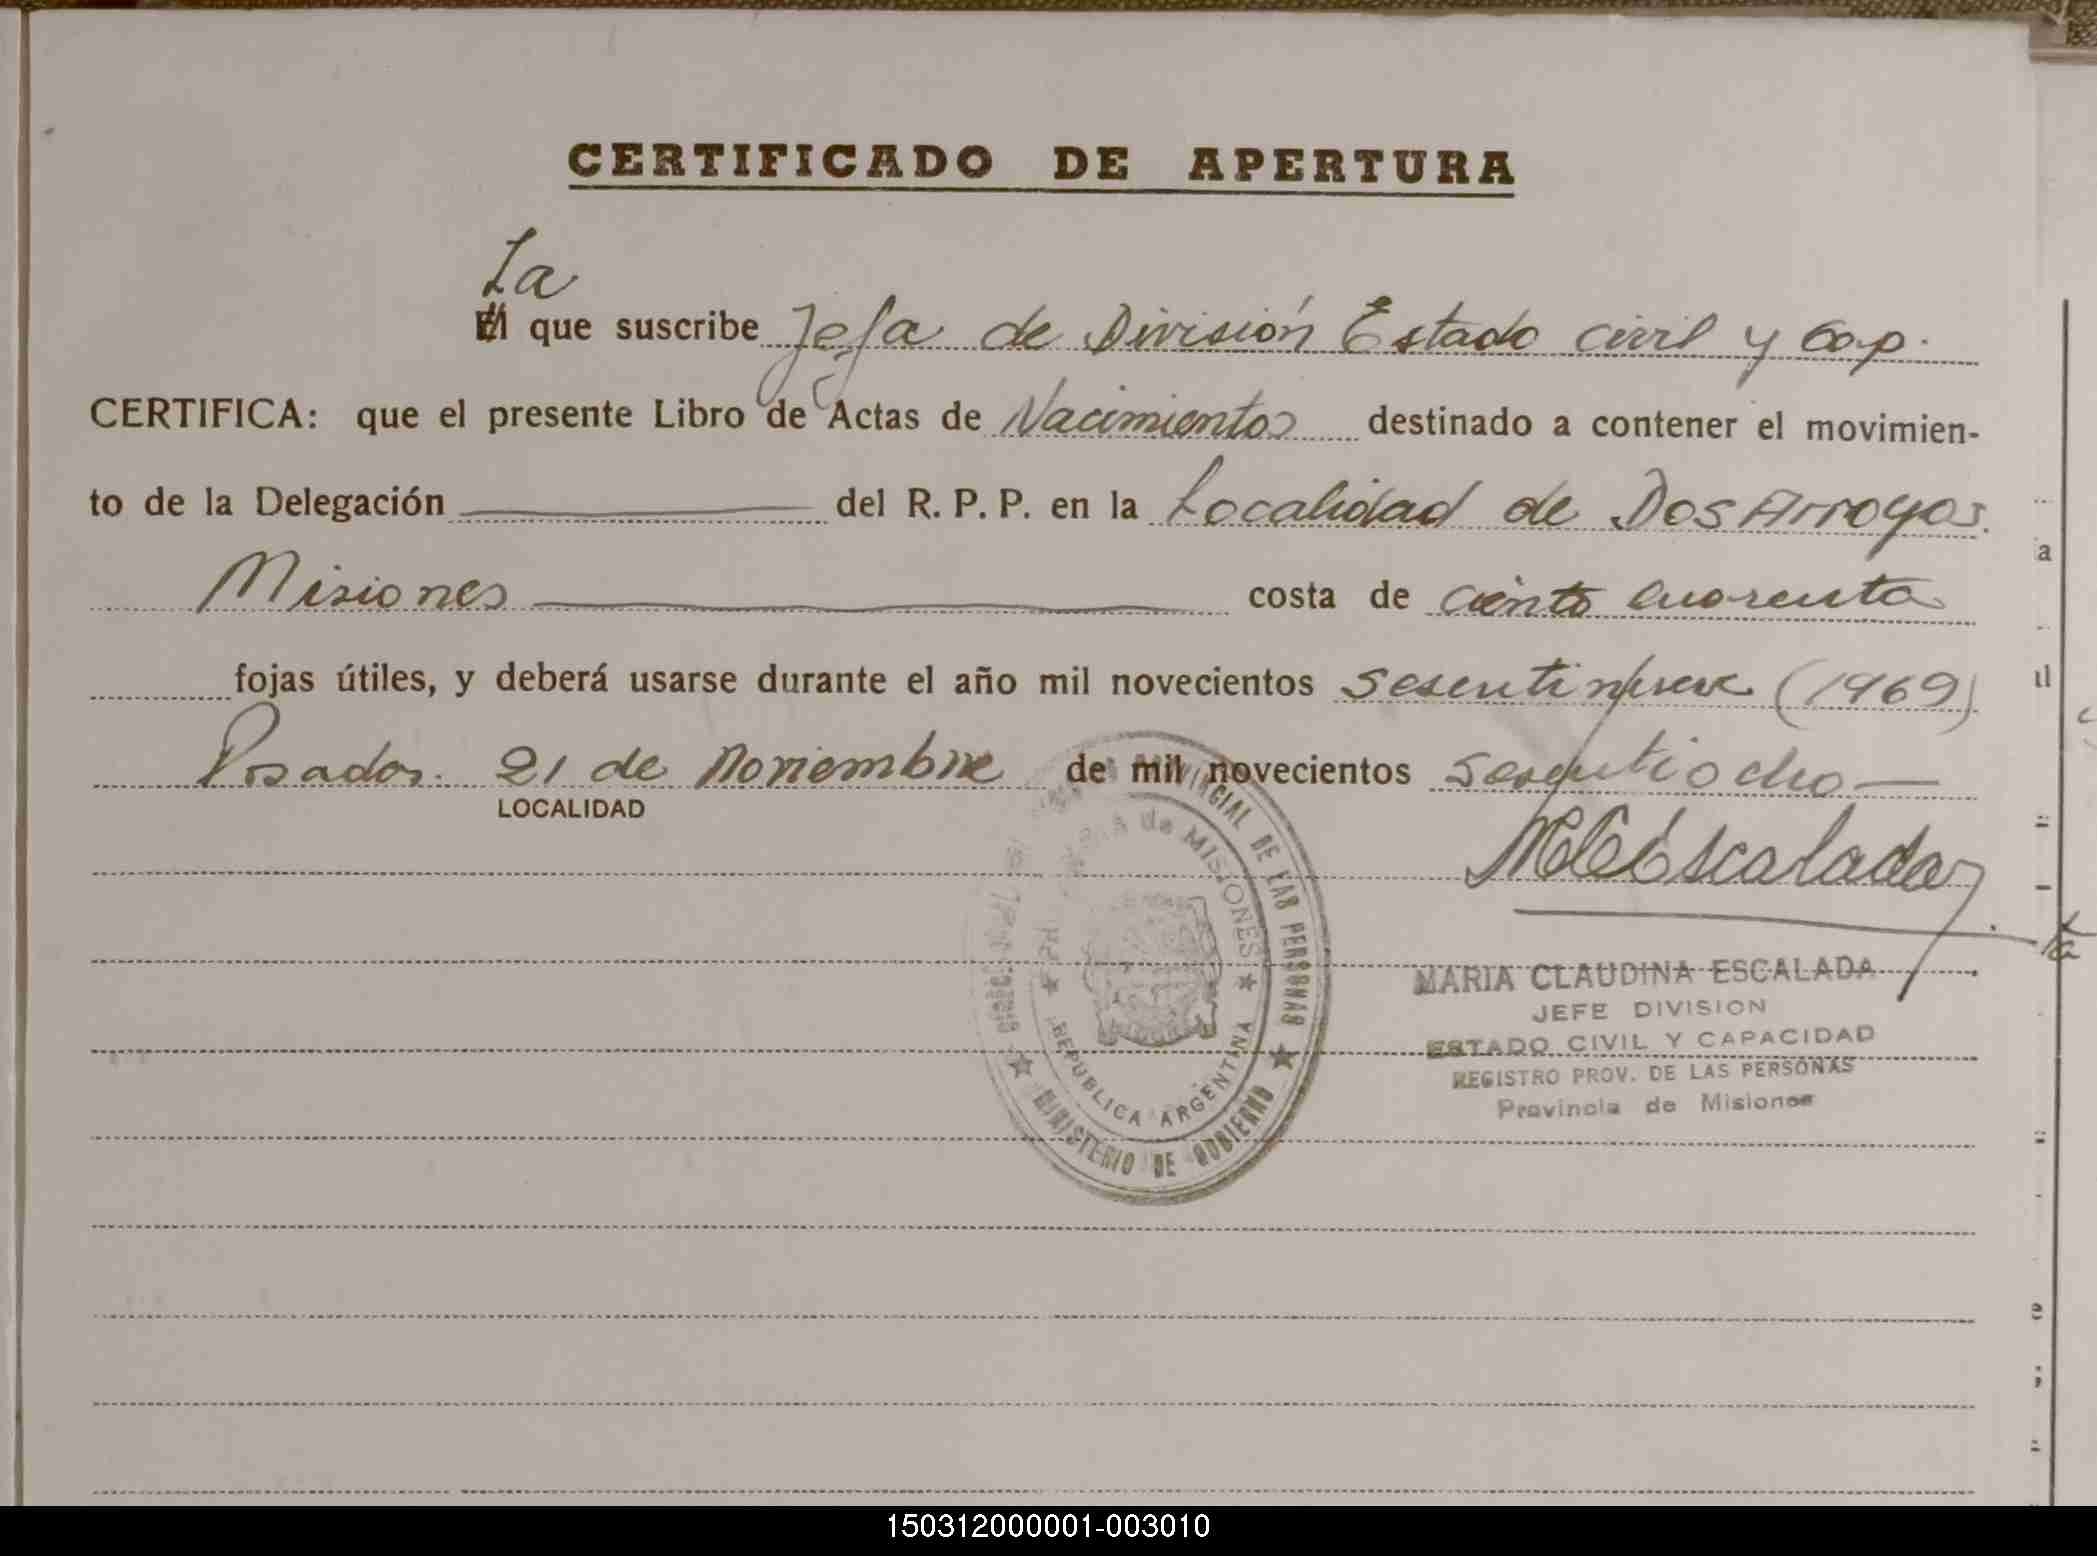 CERTIFICADO DE APERTURA
La
El que suscribe Jefa de División Estado civil y Cap.
CERTIFICA: que el presente Libro de Actas de Nacimientos destinado a contener el movimien-
to de la Delegación del R. P. P. en la Localidad de Dos Arroyos.
Misiones costa de ciento cuarenta
fojas útiles, y deberá usarse durante el año mil novecientos sesentinueve (1969)
Posadas. 21 de Noviembre de mil novecientos sesentiocho
LOCALIDAD
MCEscalada
MARIA CLAUDINA ESCALADA
JEFE DIVISION
ESTADO CIVIL Y CAPACIDAD
REGISTRO PROV. DE LAS PERSONAS
Provincia de Misiones
PROVINCIAL DE LAS PERSONAS
MINISTERIO DE GOBIERNO
de MISIONES
REPUBLICA ARGENTINA
150312000001-003010